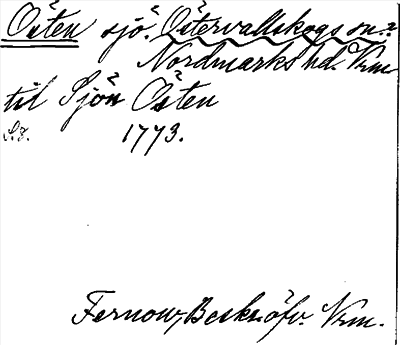 Östen sjö. Östervallskogs sn.?
Nordmarks hd. Vrm.
til Sjön Östen
S. 8. 1773.
Fernow, Beskr. öfv. Vrm.